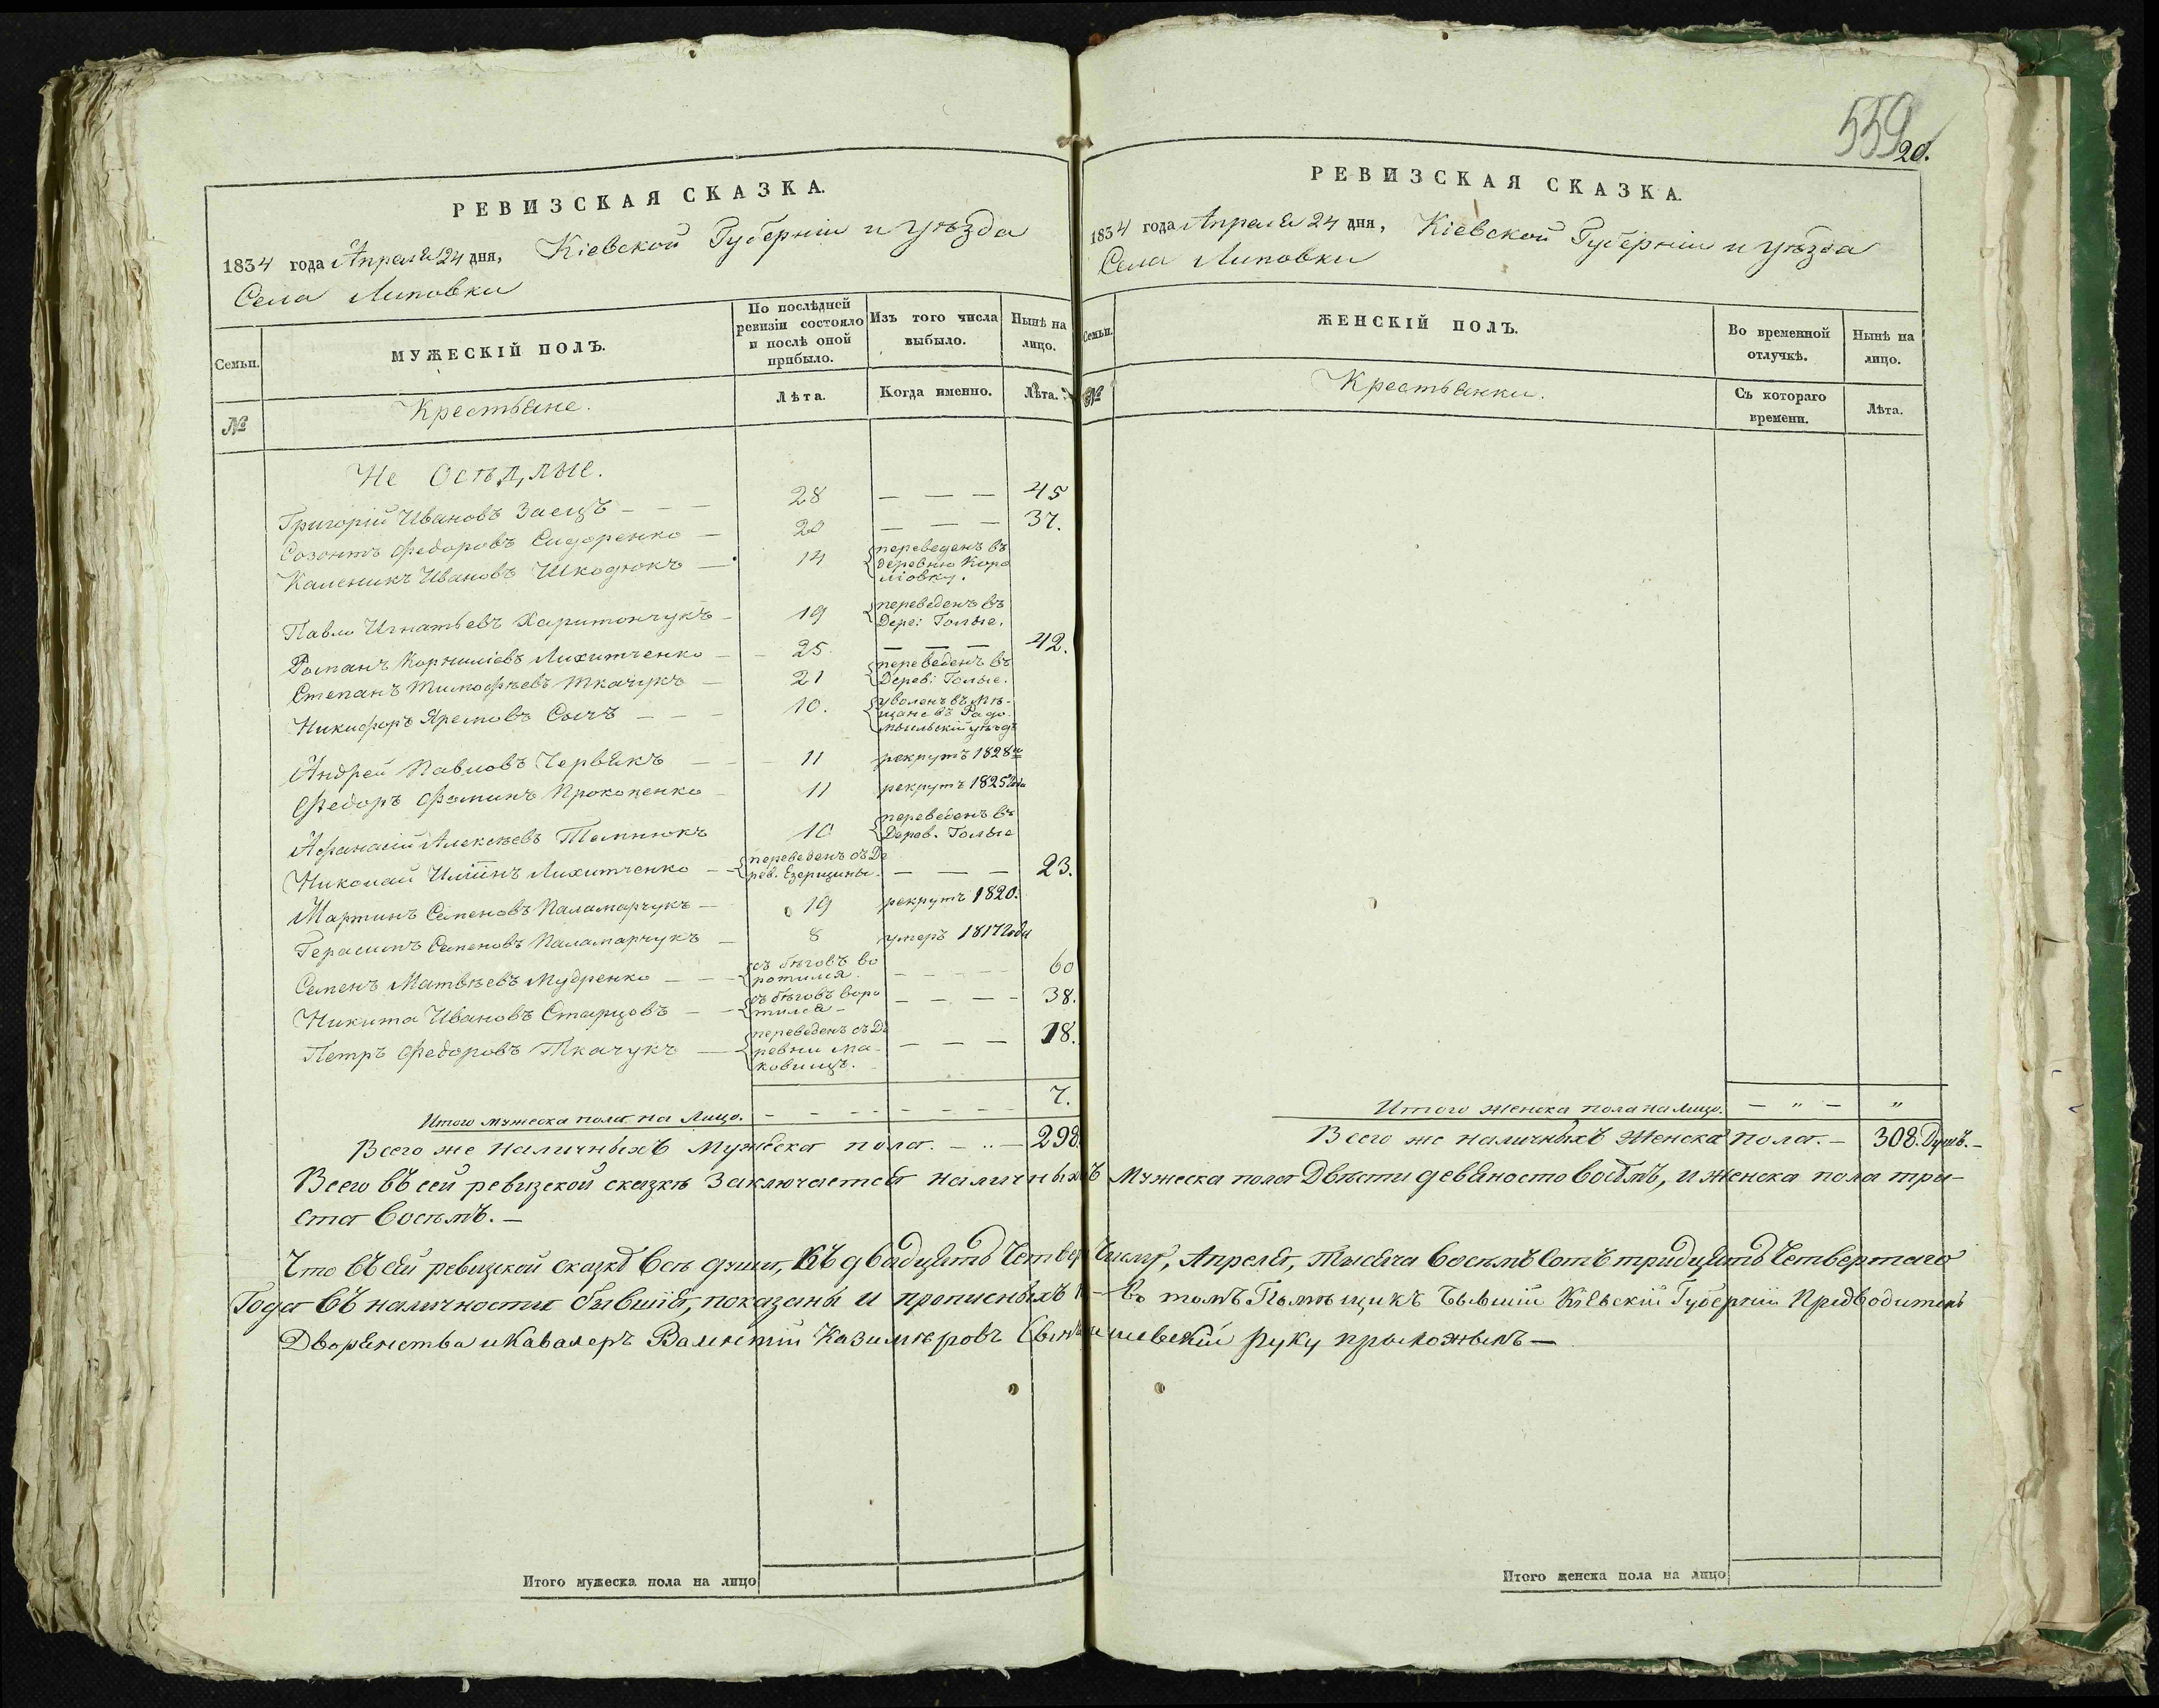 РЕВИЗСКАЯ СКАЗКА.
1834 года Апреля 24 дня, Кіевской Губерніи и уѣзда
Села Липовки
Семьи.
МУЖЕСКІЙ ПОЛЪ.
По послѣдней ревизіи состояло и послѣ оной прибыло.
Изъ того числа выбыло.
Нынѣ на лицо.
№
Крестьяне.
Лѣта.
Когда именно.
Лѣта.
Не Осѣдлые.
Григорій Ивановъ Заецъ — — — 28 — — — 45
Созонтъ Федоровъ Сидоренко — 20 — — — 37.
Каленикъ Ивановъ Шкодюкъ — 14 переведенъ въ
деревню Коро
ліовку.
Павло Игнатьевъ Харитончукъ — 19 переведенъ въ
Дере: Голые.
Романъ Корниліевъ Лихитченко — 25. — — — 42.
Степанъ Тимофѣевъ Ткачукъ — 21 переведенъ въ
Дерев: Голые.
Никифоръ Яремовъ Сычъ — — — 10. уволенъ въ Мѣ-
щане въ Радо-
мыльскій уѣздъ
Андрей Павловъ Червякъ — — 11 рекрутъ 1828
Федоръ Фоминъ Прокопенко — 11 рекрутъ 1825 года
Афанасій Алексѣевъ Темнюкъ 10 переведенъ въ
Дерев. Голые
Николай Иліинъ Лихитченко — переведенъ съ Де
рев. Езерщины. — — — 23.
Мартинъ Семеновъ Паламарчукъ — 19 рекрутъ 1820.
Герасимъ Семеновъ Паламарчукъ — 8 умеръ 1817 года
Семенъ Матвѣевъ Мудренко — — съ бѣговъ во
ротился. — — — — 60
Никита Ивановъ Старцовъ — — съ бѣговъ воро
тился — — — — — 38.
Петръ Федоровъ Ткачукъ — переведенъ съ Де
ревни Ма-
ковищъ. — — — 18.
Итого мужеска пола на Лицо. — — — — — — — 7.
Всего же Наличныхъ Мужеска пола. — „ — 298.
559
20.
РЕВИЗСКАЯ СКАЗКА.
1834 года Апреля 24 дня, Кіевской Губерніи и уѣзда
Села Липовки
Семьи.
ЖЕНСКІЙ ПОЛЪ.
Во временной отлучкѣ.
Нынѣ на лицо.
№
Крестьянки.
Съ котораго времени.
Лѣта.
Итого женска пола на Лицо. — „ — „
Всего же наличныхъ Женска пола. — 308. Душъ. —
Всего въ сей ревизской сказкѣ Заключается наличныхъ Мужеска пола Двѣсти девяносто восѣмъ, и женска пола три-
ста восѣмъ. —
Что въ сей ревизской сказкѣ всѣ души, Къ двадцять Четвер Числу, Апреля, Тысяча восѣмъ сотъ тридцять Четвертаго
Года въ наличности бывшія, показаны и прописныхъ — Во томъ Помѣщикъ Бывшій Кіевскій Губерніи Предводитель
Дворянства и Кавалеръ Валентій Казимѣровъ руку приложылъ —
Итого мужеска пола на лицо
Итого женска пола на лицо